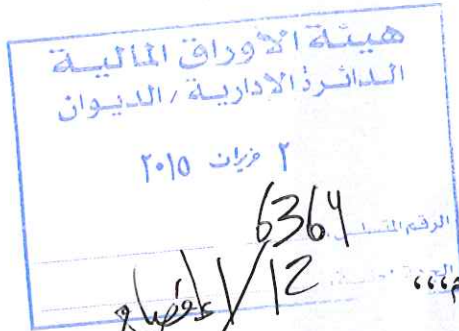 هيئة الاوراق المالية
الدائرة الادارية / الديوان
٢ حزيران ٢٠١٥
الرقم المتسلسل 6364
12
،،،